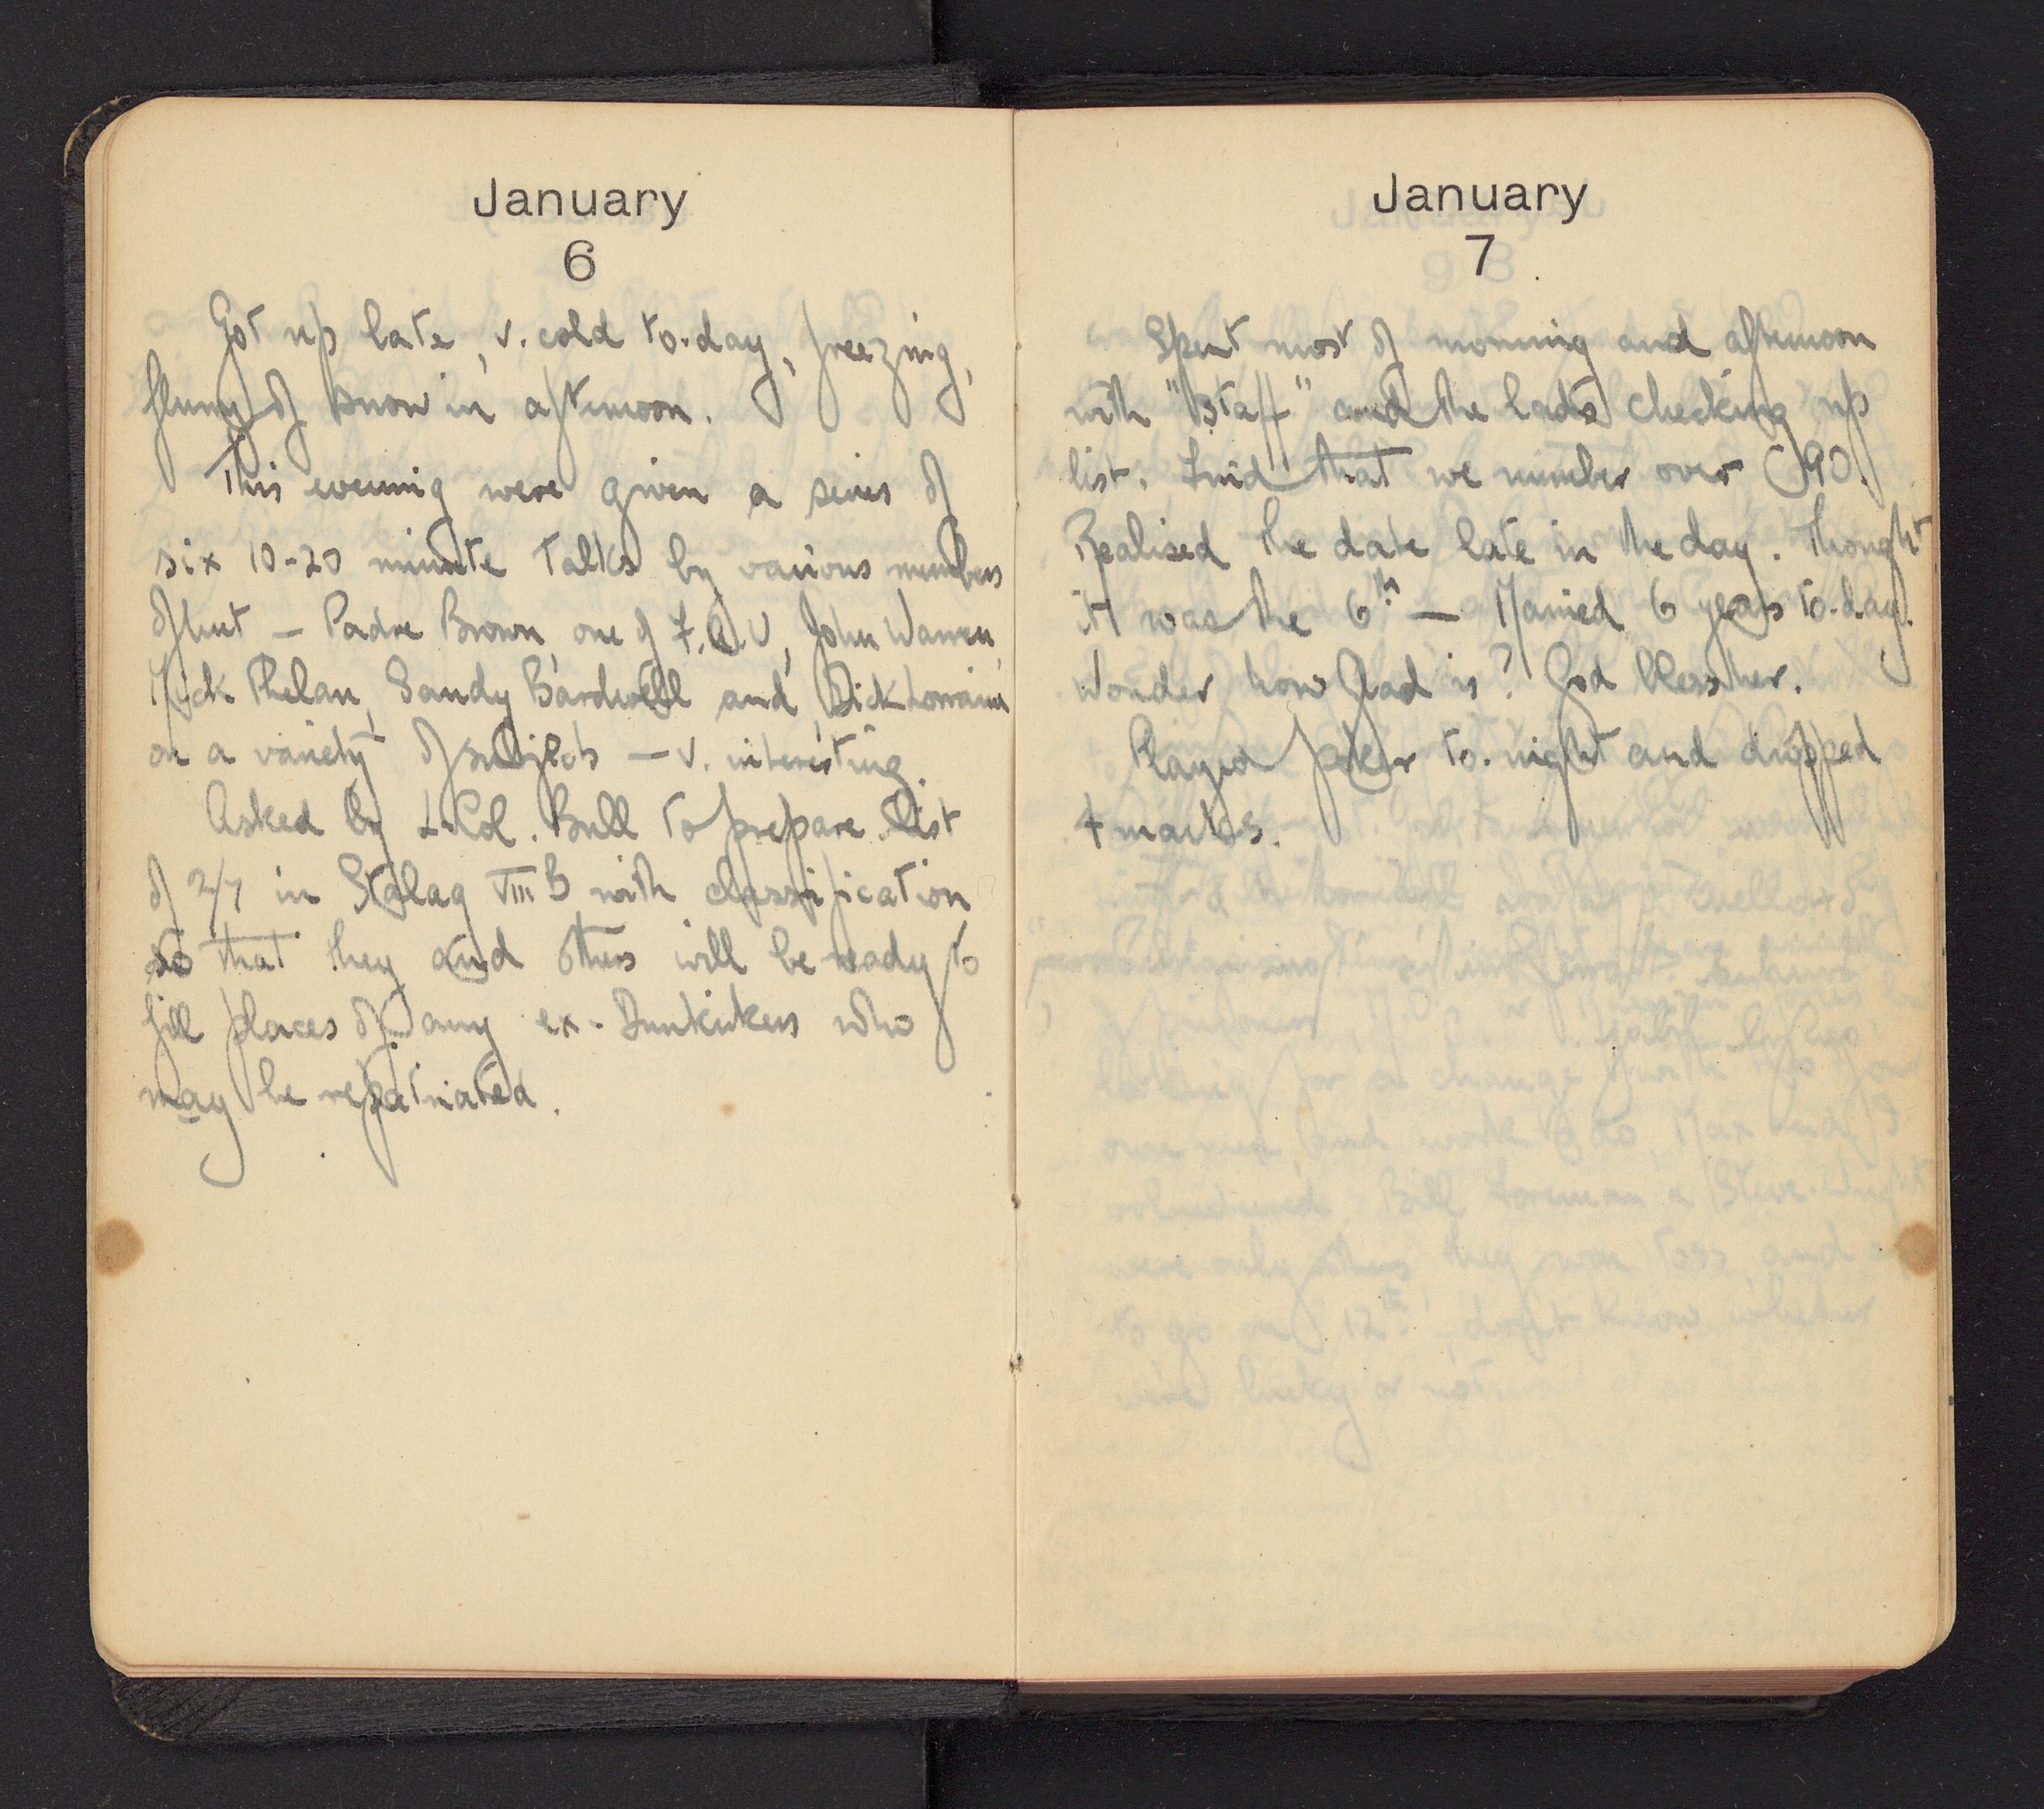 January
6
Got up late, v. cold to-day, freezing,
flurry of snow in afternoon.
This evening were given a series of
six 10-20 minute talks by various members
of hut — Padre Brown, one of F.A.U, John Warren,
Mick Phelan, Sandy Bardwell and Dick Lorraine
on a variety of subjects — v. interesting.
Asked by Lt. Col. Bull to prepare list
of 2/7 in Stalag VIII B with classification
so that they and others will be ready to
fill places of any ex-Dunkirkers who
may be repatriated.
January
7
Spent most of morning and afternoon
with "staff" and the lads checking up
list. Find that we number over 90.
Realised the date late in the day. Thought
it was the 6th — Married 6 years to-day.
Wonder how Glad is? God bless her.
Played poker to-night and dropped
4 marks.